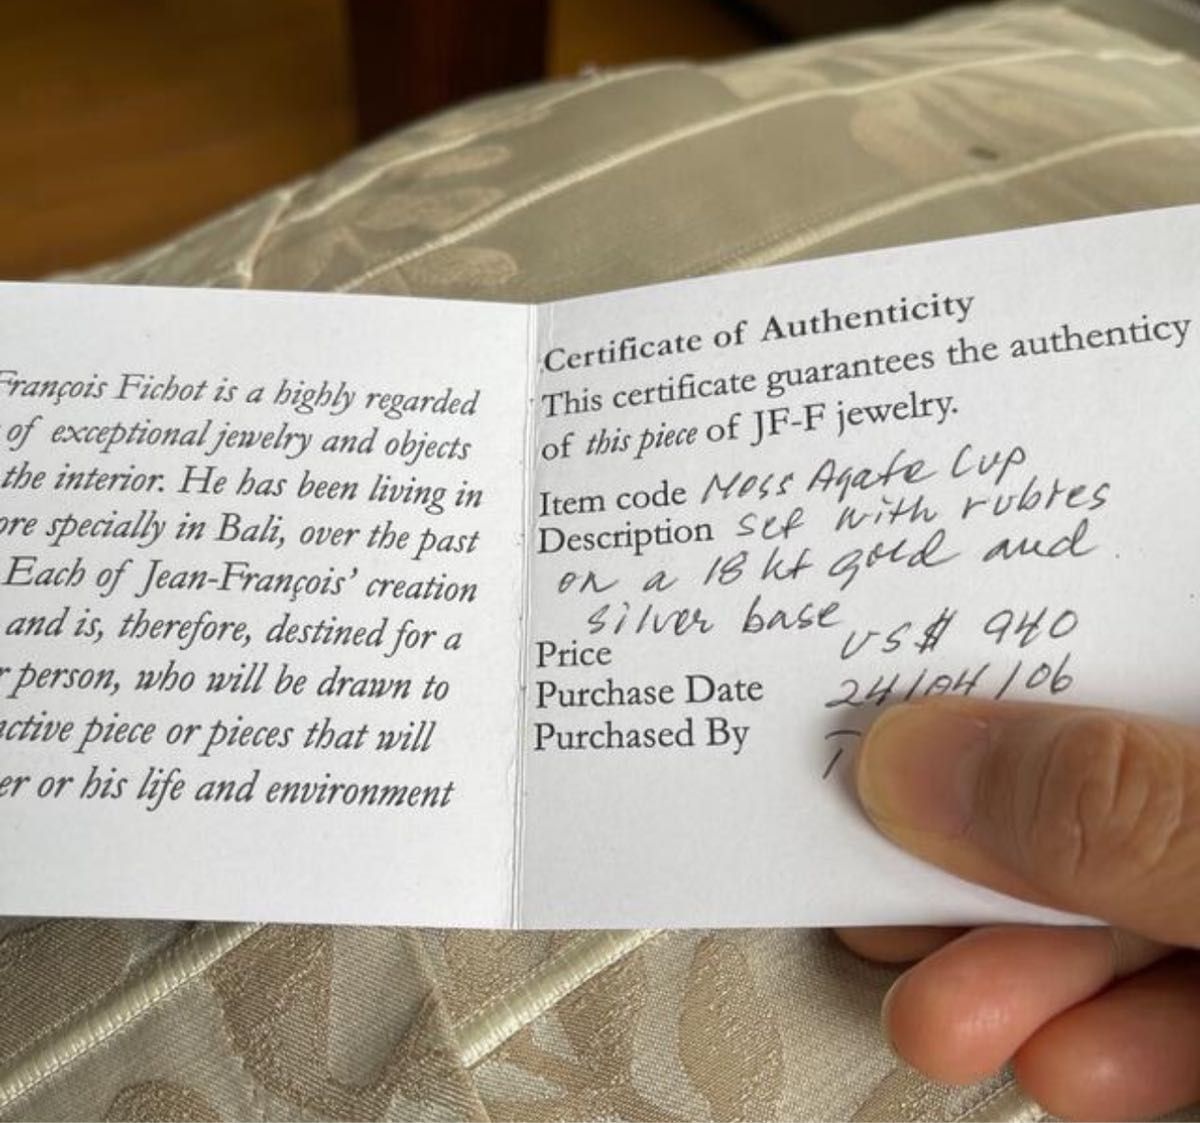 François Fichot is a highly regarded
of exceptional jewelry and objects
the interior. He has been living in
ore specially in Bali, over the past
Each of Jean-François' creation
and is, therefore, destined for a
r person, who will be drawn to
active piece or pieces that will
er or his life and environment
Certificate of Authenticity
This certificate guarantees the authenticy
of this piece of JF-F jewelry.
Item code Moss Agate Cup
Description set with rubies
on a 18 kt gold and
silver base
Price US$ 940
Purchase Date 24/04/06
Purchased By